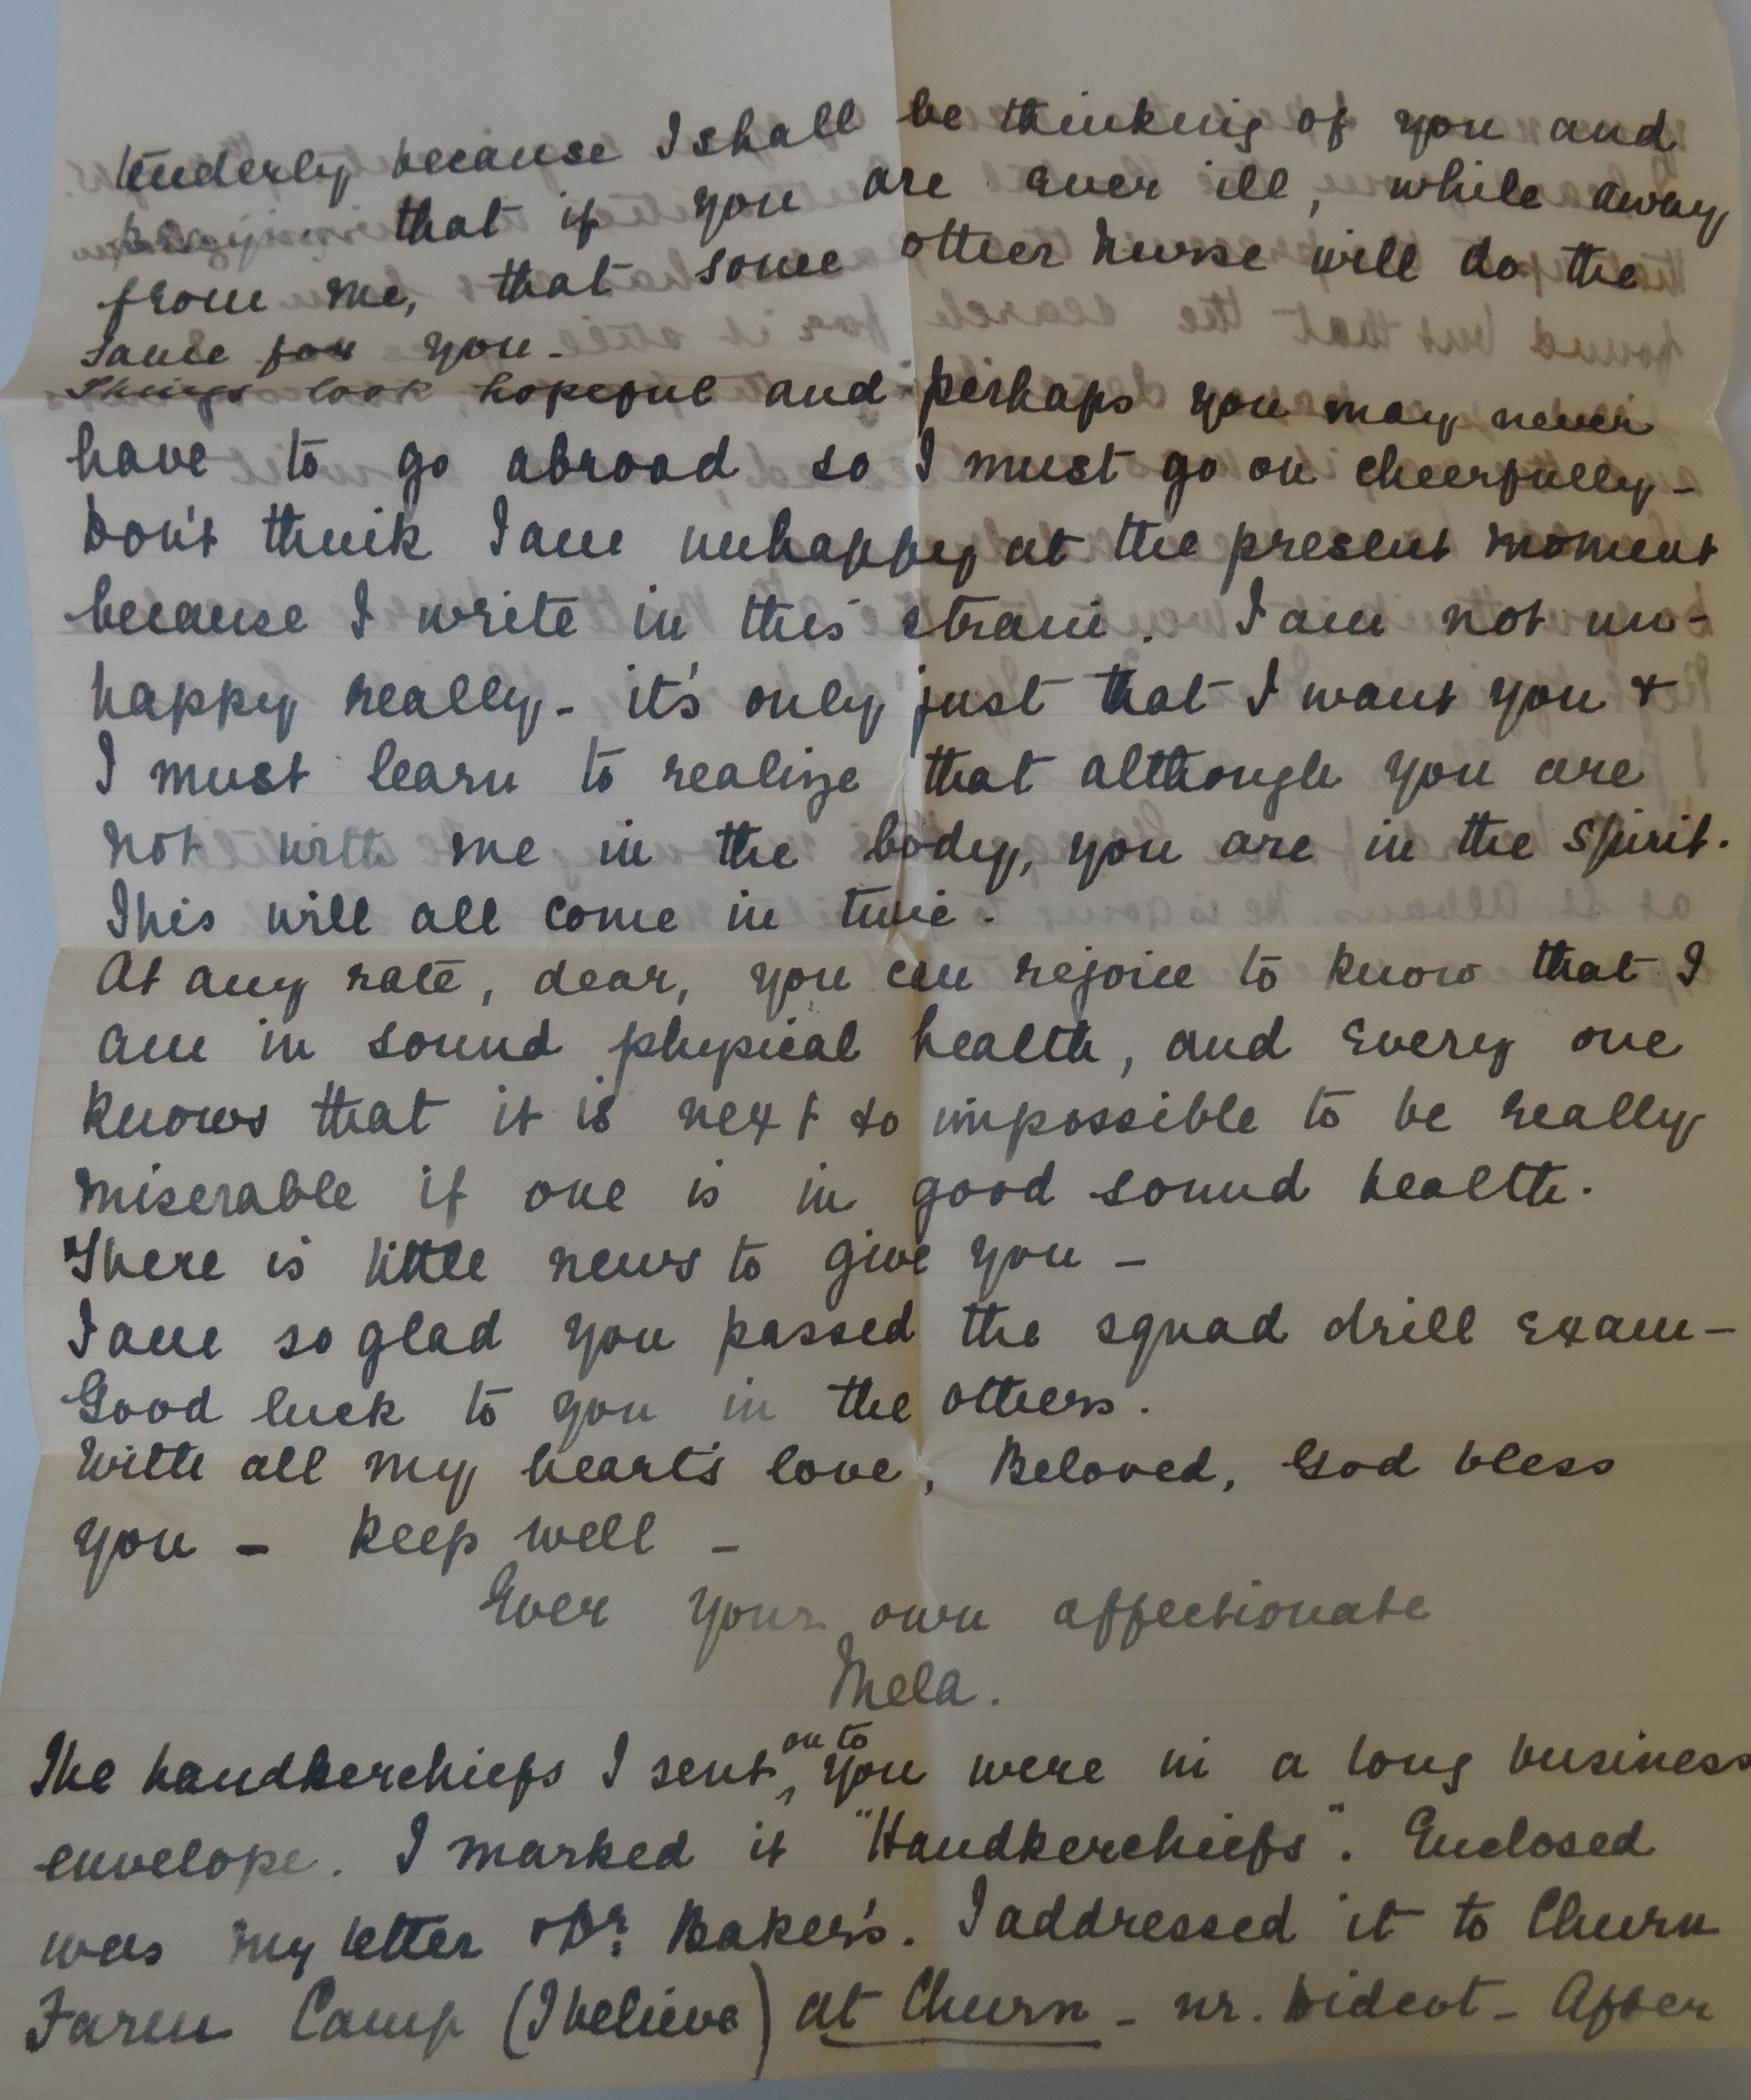 tenderly because I shall be thinking of you and
praying that if you are ever ill, while away
from me, that some other nurse will do the
same for you -
Things look hopeful and perhaps you may never
have to go abroad so I must go on cheerfully -
Don't think I am unhappy at the present moment
because I write in this strain. I am not un-
happy really - it's only just that I want you &
I must learn to realize that although you are
not with me in the body, you are in the spirit.
This will all come in time.
At any rate, dear, you can rejoice to know that I
am in sound physical health, and every one
knows that it is next to impossible to be really
miserable if one is in good sound health.
There is little news to give you -
I am so glad you passed the squad drill exam -
Good luck to you in the others.
With all my heart's love, Beloved, God bless
you - Keep well -
Ever your own affectionate
Mela.
The handkerchiefs I sent on to you were in a long business
envelope. I marked it "Handkerchiefs". Enclosed
was my letter & Dr. Baker's. I addressed it to Churn
Farm Camp (I believe) at Churn - nr. Didcot - After